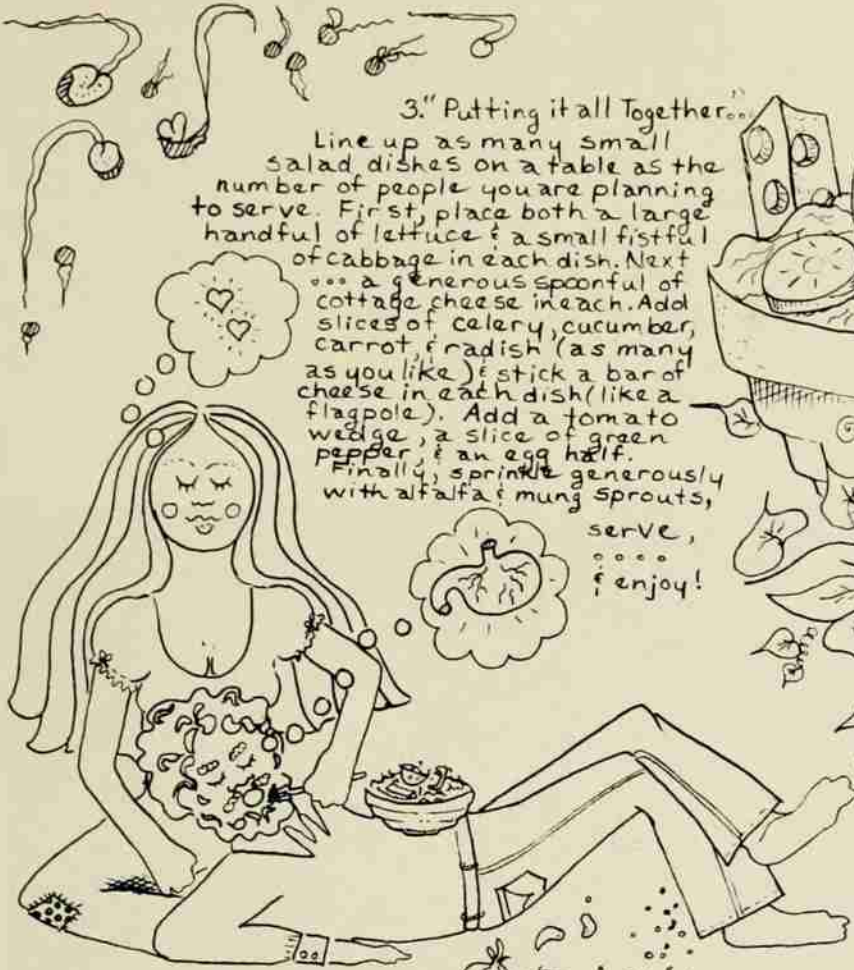 3." Putting it all Together..."
Line up as many small
salad dishes on a table as the
number of people you are planning
to serve. First, place both a large
handful of lettuce & a small fistful
of cabbage in each dish. Next
... a generous spoonful of
cottage cheese in each. Add
slices of celery, cucumber,
carrot, & radish (as many
as you like) & stick a bar of
cheese in each dish (like a
flagpole). Add a tomato
wedge, a slice of green
pepper, & an egg half.
Finally, sprinkle generously
with alfalfa & mung sprouts,
serve,
....
& enjoy!